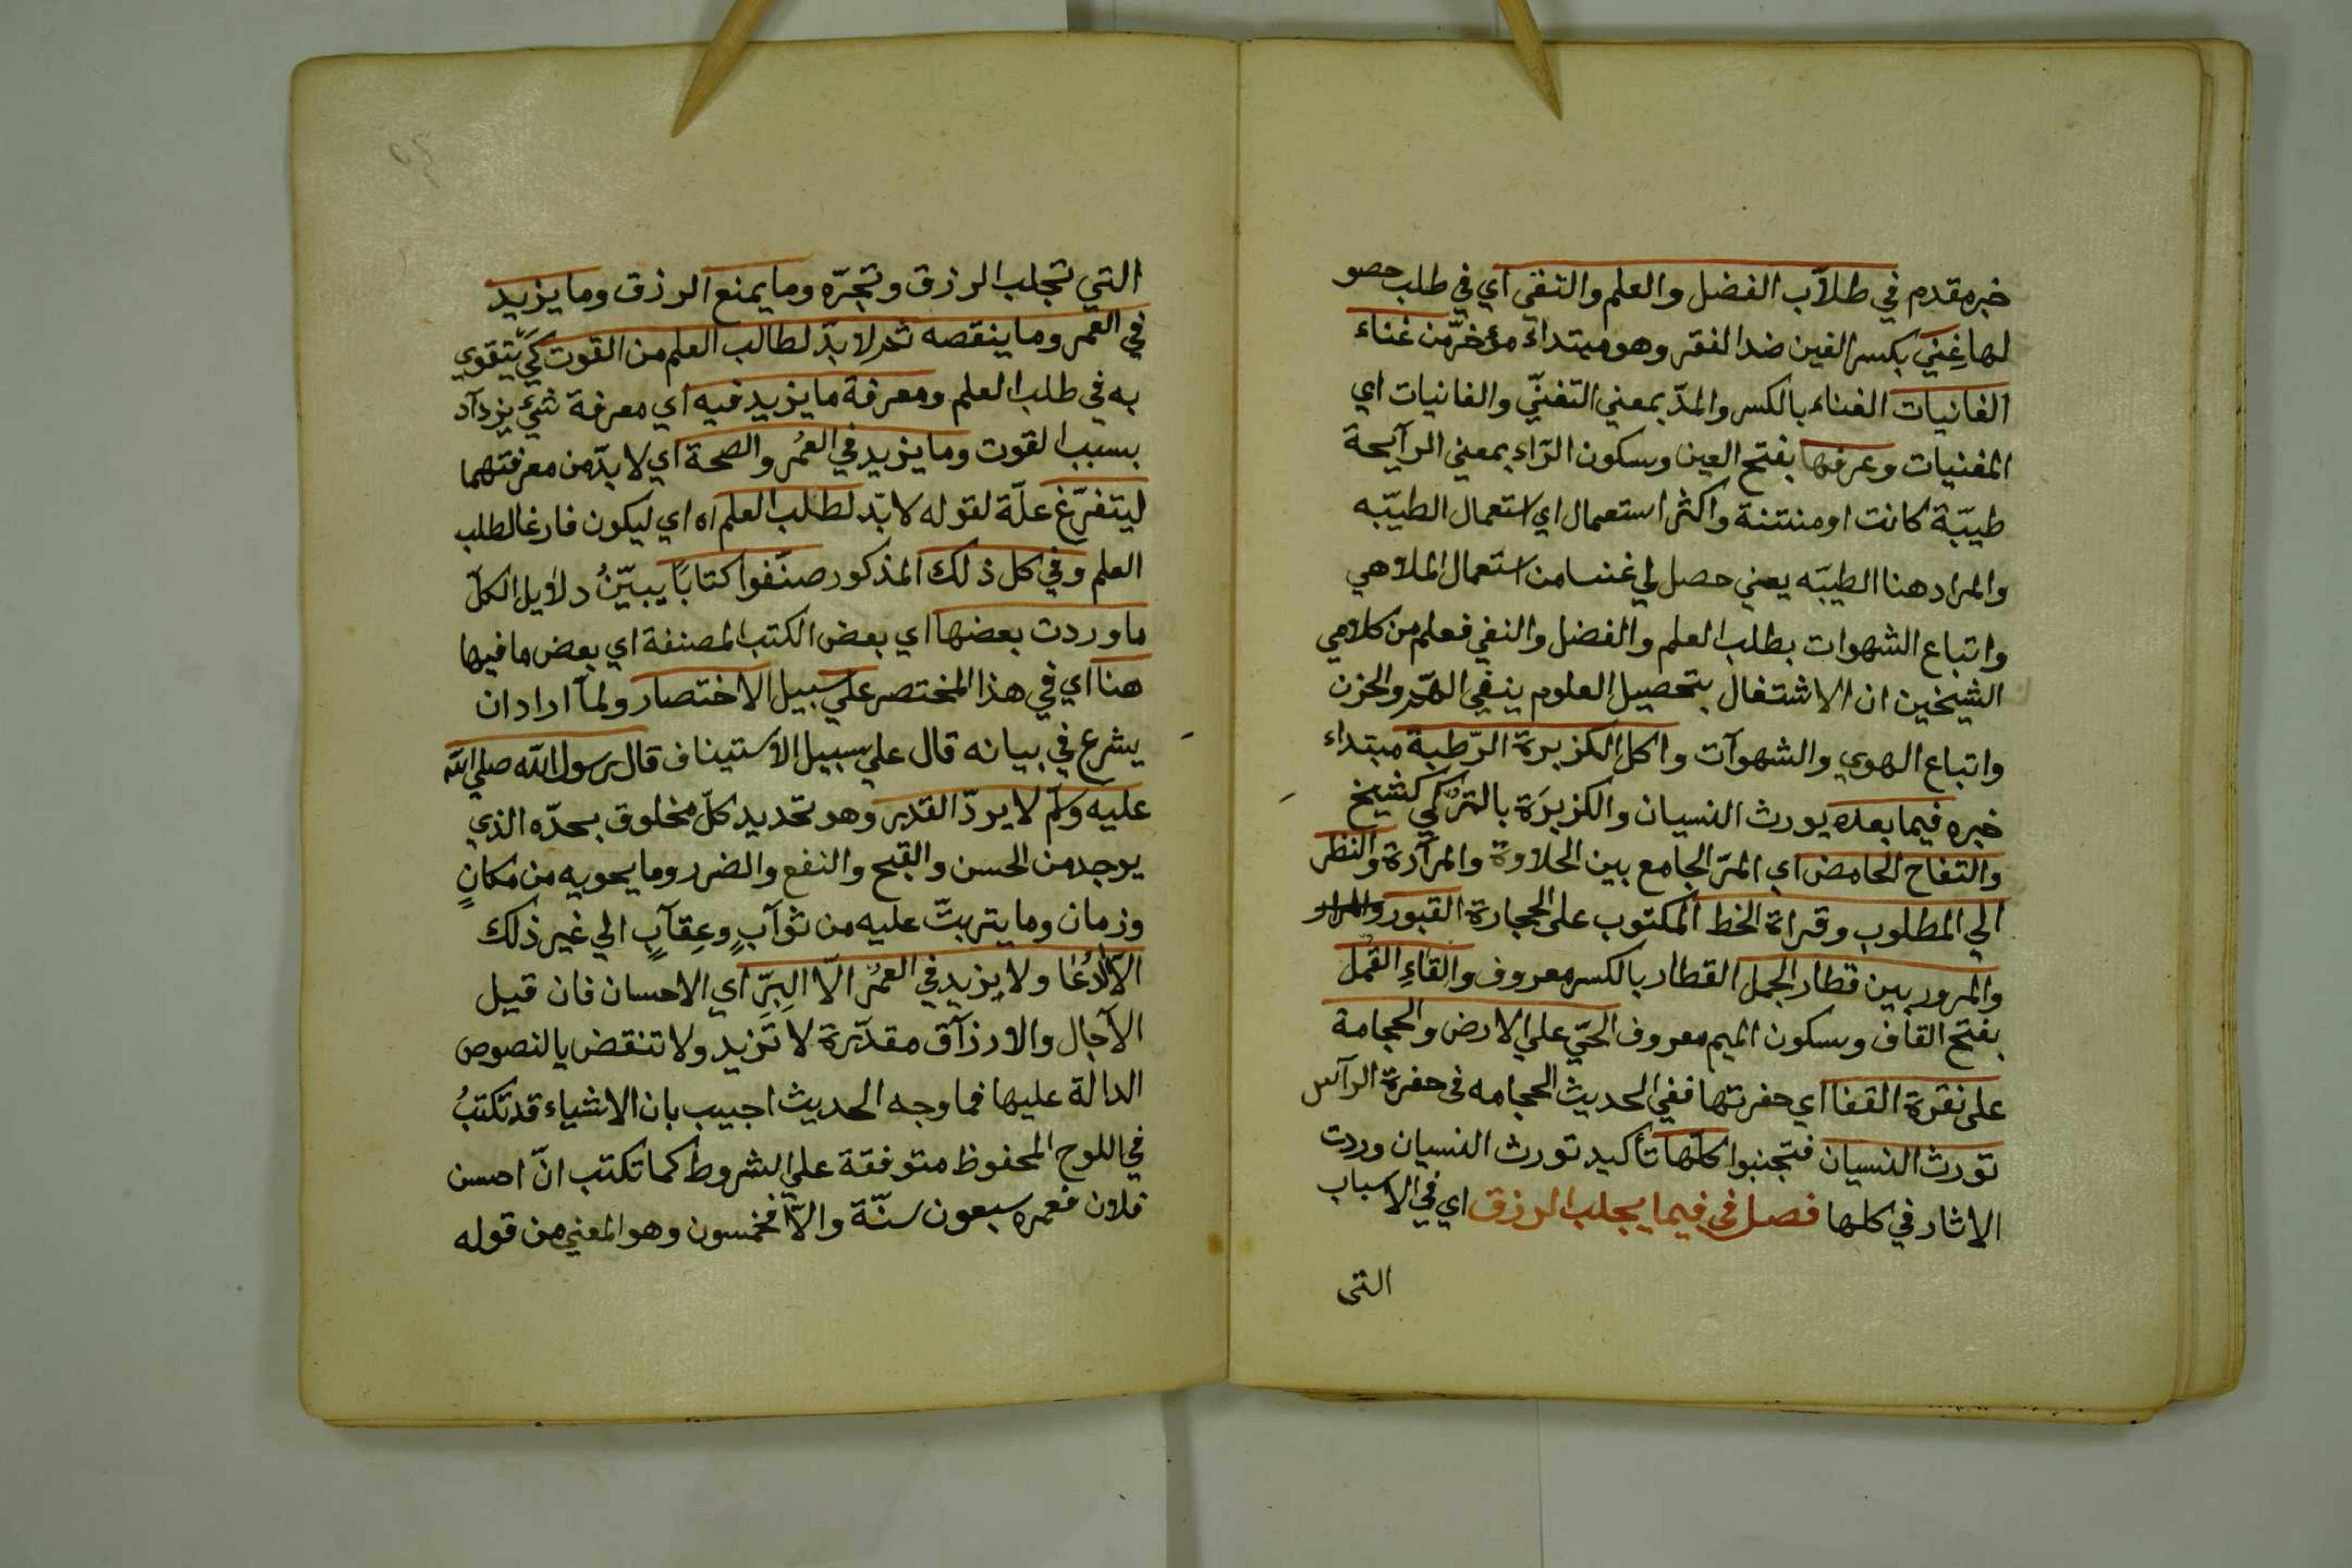 خبر مقدم في طلاّب الفضل والعلم والتقي اي في طلب حصو
لها غِنيً بكسر الغين ضد الفقر وهو مبتداء مؤخرّ من غناء
الغانيات الغناء بالكسر والمدّ بمعني التغنّي والغانيات اي
المغنيات وعرفها بفتح العين وسكون الرّاء بمعني الرآيحة
طيبّة كانت او منتنة واكثر استعمال اي استعمال الطيّبه
والمراد هنا الطيبّه يعني حصل لي من استعمال الملاهي
واتباع الشهوات بطلب العلم والفضل والنفي فعلم من كلامي
الشيخين ان الاشتغال بتحصيل العلوم ينفي الهمّ والحزن
واتباع الهوي والشهوآت واكل الكزبرة الرّطبة مبتداء
خبره فيما بعده يورث النسيان والكزبَرة بالتركي كشنيخ
والتفاح الحامض اي المزّ الجامع بين الحلاوة والمرآرة والنظر
الي المطلوب وقراءة الخط المكتوب على الحجارة القبور
والمرور بين قطار الجمل القطار بالكسر معروف والقاءِ القمل
بفتح القاف وسكون الميم معروف الحَيّ علي الارض والحجامة
على نقرة القفا اي حفرتها ففي الحديث الحجامه فى حفرة الرآس
تورث النسيان فتجنبوا كلّها تأكيد تورث النسيان وردت
الاثار في كلها فصل فى فيما يجلب الرزق اي في الاسباب
التى
التي تجلب الرزق وتجرّه وما يمنع الرزق وما يزيد
في العمر وما ينقصه ثم لا بدّ لطالب العلم من القوت كَيْ يَّتقوي
به في طلب العلم ومعرفة ما يزيد فيه اي معرفة شيئ يزدآد
بسبب القوت وما يزيد في العمُر والصحة اي لا بدّ من معرفتهما
ليتفرّغ علّة لقوله لا بّد لطلب العلم اه اي ليكون فارغا لطلب
العلم وفي كل ذلك المذكور صنّفوا كتابًا يبيّنُ دلايل الكلّ
ما وردت بعضها اي بعض الكتب المصنفة اي بعض ما فيها
هنا اي في هذا المختصر علي سبيل الاختصار ولمآ اراد ان
يشرع في بيانه قال علي سبيل الاستيناف قال رسول الله صلي الله
عليه وسلم لا يردّ القدر وهو تحديد كلّ مخلوق بحدّه الذي
يوجد من الحسن والقبح والنفع والضرر وما يحويه من مكانٍ
وزمان وما يتربتّ عليه من ثوآبٍ وعِقآبٍ الي غير ذلك
الاّ الدُعَا ولا يزيد في العمُر الاّ البِرّ اي الاحسان فان قيل
الآجال والارزآق مقدّرة لا تَزيد ولا تنقض بالنصوص
الدالة عليها فما وجه الحديث اجيب بان الاشياء قد تكتبُ
في اللوح المحفوظ متوفقة علي الشروط كما تكتب انّ احسن
فلان فعمره سبعون سنّة والاّ فخمسون وهو المعني من قوله